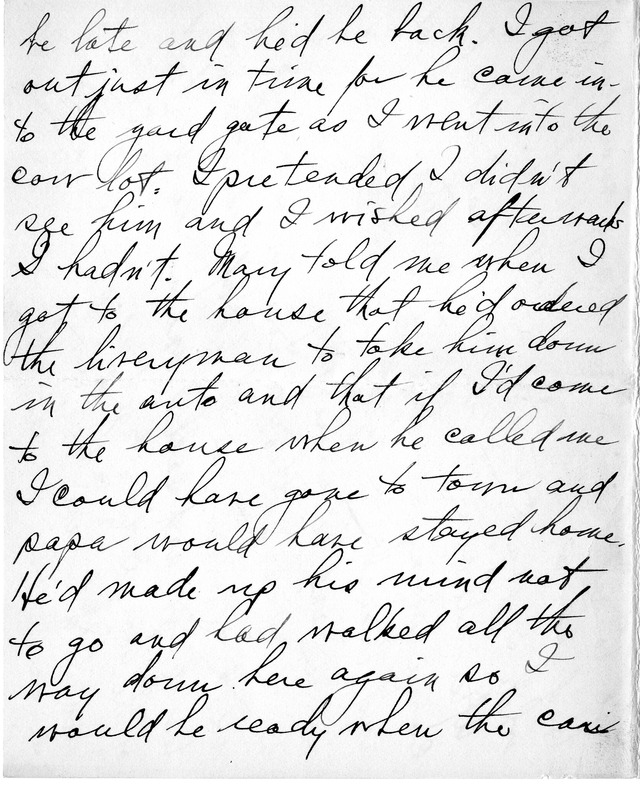 be late and he'd be back. I got
out just in time for he came in-
to the yard gate as I went into the
cow lot. I pretended I didn't
see him and I wished afterwards
I hadn't. Mary told me when I
got to the house that he'd ordered
the liveryman to take him down
in the auto and that if I'd come
to the house when he called me
I could have gone to town and
papa would have stayed home.
He'd made up his mind not
to go and had walked all the
way down here again so I
would be ready when the